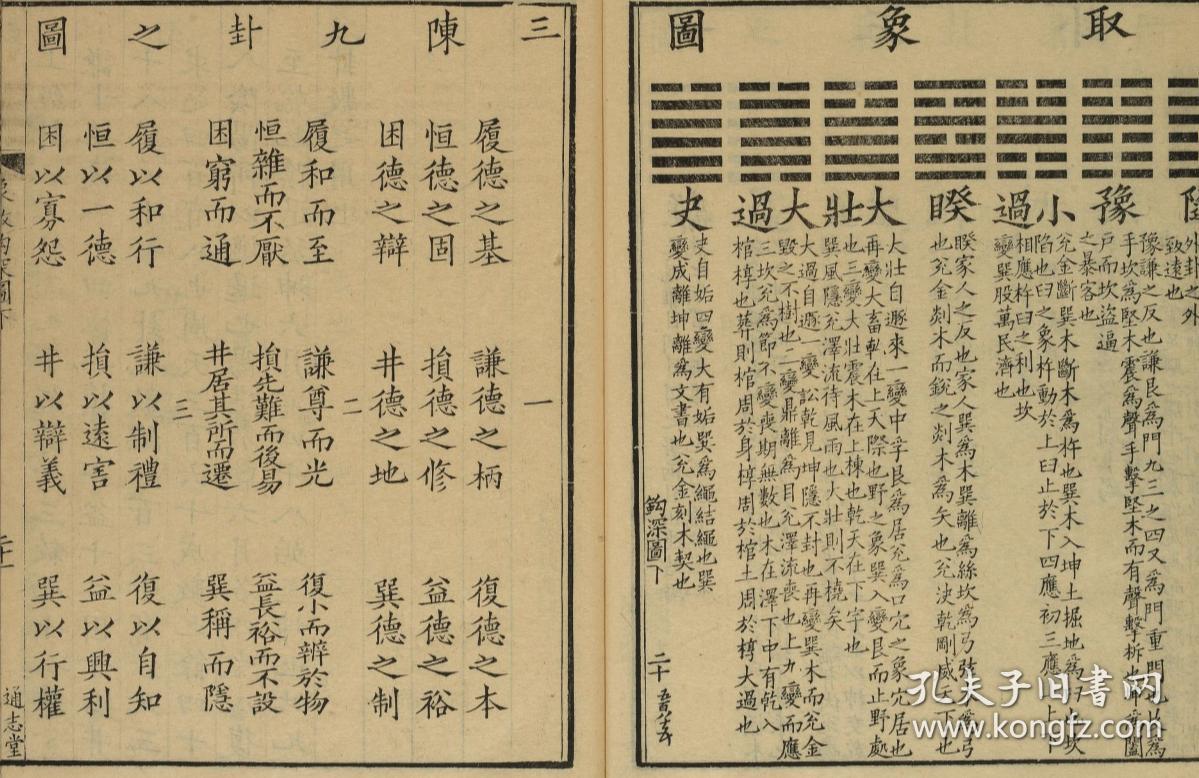 取象圖
外卦之外
致遠也
豫
手坎為堅木震為聲手擊堅木而有聲擊柝也
戶而坎盜逼
之暴客也
小過
兊金斷巽木斷木為杵也巽木入坤土掘地為
陷也臼之象杵動於上臼止於下四應初三應上
相應杵臼之利也坎
變巽股萬民濟也
睽
睽家人之反也家人巽為木巽離為絲坎為弓弦木為弓
也兊金剡木而銳之剡木為矢也兊決乾剛威天下也
大壯
大壯自遯來一變中孚艮為居兊為口穴之象穴居也
再變大畜乾在上天際也野之象巽入變艮而止野處
也三變大壯震木在上棟也乾天在下宇也
巽風隱兊澤流待風雨也大壯則不橈矣
大過
大過自遯一變訟乾見坤隱不封也再變巽木而兊金
毀之不樹也三變鼎離為目兊澤流喪也上九變而應
三坎兊為節不變喪期無數也木在澤下中有乾入
棺椁也葬則棺周於身椁周於棺土周於椁大過也
夬
夬自姤四變大有姤巽為繩結繩也巽
變成離坤離為文書也兊金刻木契也
鈎深圖下
二十
三陳九卦之圖
一
履德之基
謙德之柄
復德之本
恒德之固
損德之修
益德之裕
困德之辯
井德之地
巽德之制
二
履和而至
謙尊而光
復小而辨於物
恒雜而不厭
損先難而後易
益長裕而不設
困窮而通
井居其所而遷
巽稱而隱
三
履以和行
謙以制禮
復以自知
恒以一德
損以遠害
益以興利
困以寡怨
井以辯義
巽以行權
通志堂
孔夫子旧书网
www.kongfz.com